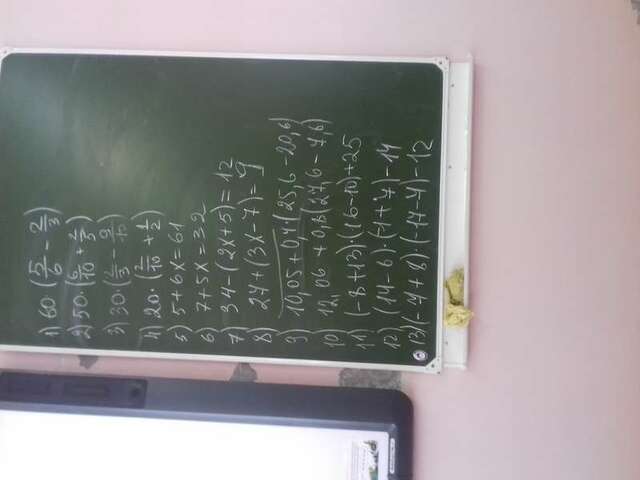 1) 60 (5/6 - 2/3)
2) 50·(6/10 + 1/5)
3) 30 (1/3 - 9/10)
4) 20·(2/10 + 1/2)
5) 5+6x=61
6) 7+5x=32
7) 34-(2x+5)=12
8) 24+(3x-7)=9
9) 10,05+0,4(25,6-20,6)
10) 12,06+0,8(27,6-7,6)
11) (-8+13)·(16-10)+25
12) (14-6)·(-1+7)-14
13) (-7+8)·(-17-4)-12